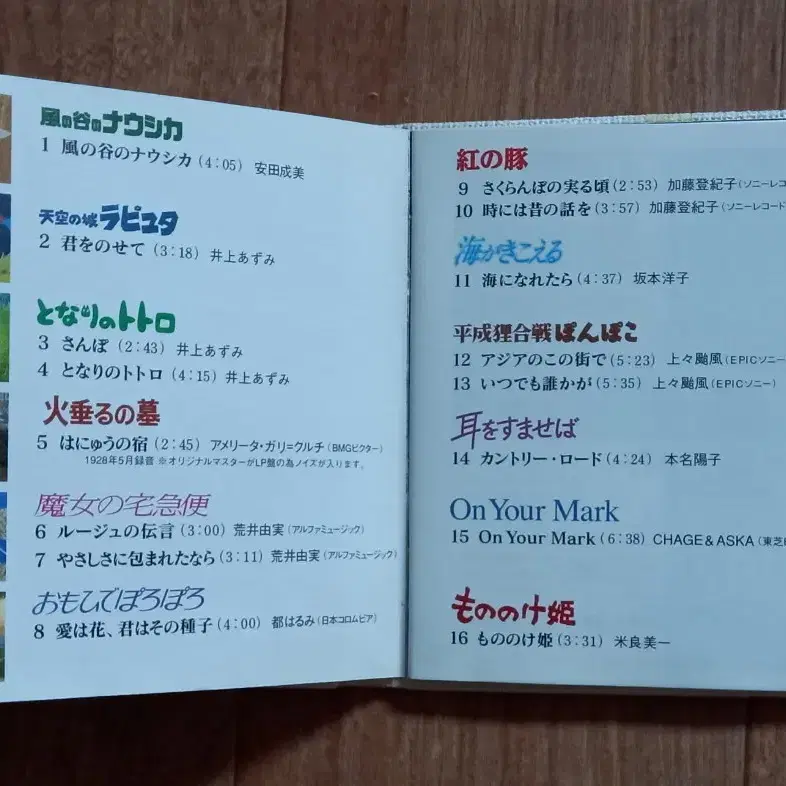 風の谷のナウシカ
1 風の谷のナウシカ(4:05) 安田成美
天空の城ラピュタ
2 君をのせて(3:18) 井上あずみ
となりのトトロ
3 さんぽ(2:43) 井上あずみ
4 となりのトトロ(4:15) 井上あずみ
火垂るの墓
5 はにゅうの宿(2:45) アメリータ・ガリ=クルチ(BMGビクター)
1928年5月録音 ※オリジナルマスターがLP盤の為ノイズが入ります。
魔女の宅急便
6 ルージュの伝言(3:00) 荒井由実(アルファミュージック)
7 やさしさに包まれたなら(3:11) 荒井由実(アルファミュージック)
おもひでぽろぽろ
8 愛は花、君はその種子(4:00) 都はるみ(日本コロムビア)
紅の豚
9 さくらんぼの実る頃(2:53) 加藤登紀子(ソニーレコ
10 時には昔の話を(3:57) 加藤登紀子(ソニーレコード
海がきこえる
11 海になれたら(4:37) 坂本洋子
平成狸合戦ぽんぽこ
12 アジアのこの街で(5:23) 上々颱風(EPICソニー
13 いつでも誰かが(5:35) 上々颱風(EPICソニー)
耳をすませば
14 カントリー・ロード(4:24) 本名陽子
On Your Mark
15 On Your Mark(6:38) CHAGE&ASKA(東芝
もののけ姫
16 もののけ姫(3:31) 米良美一